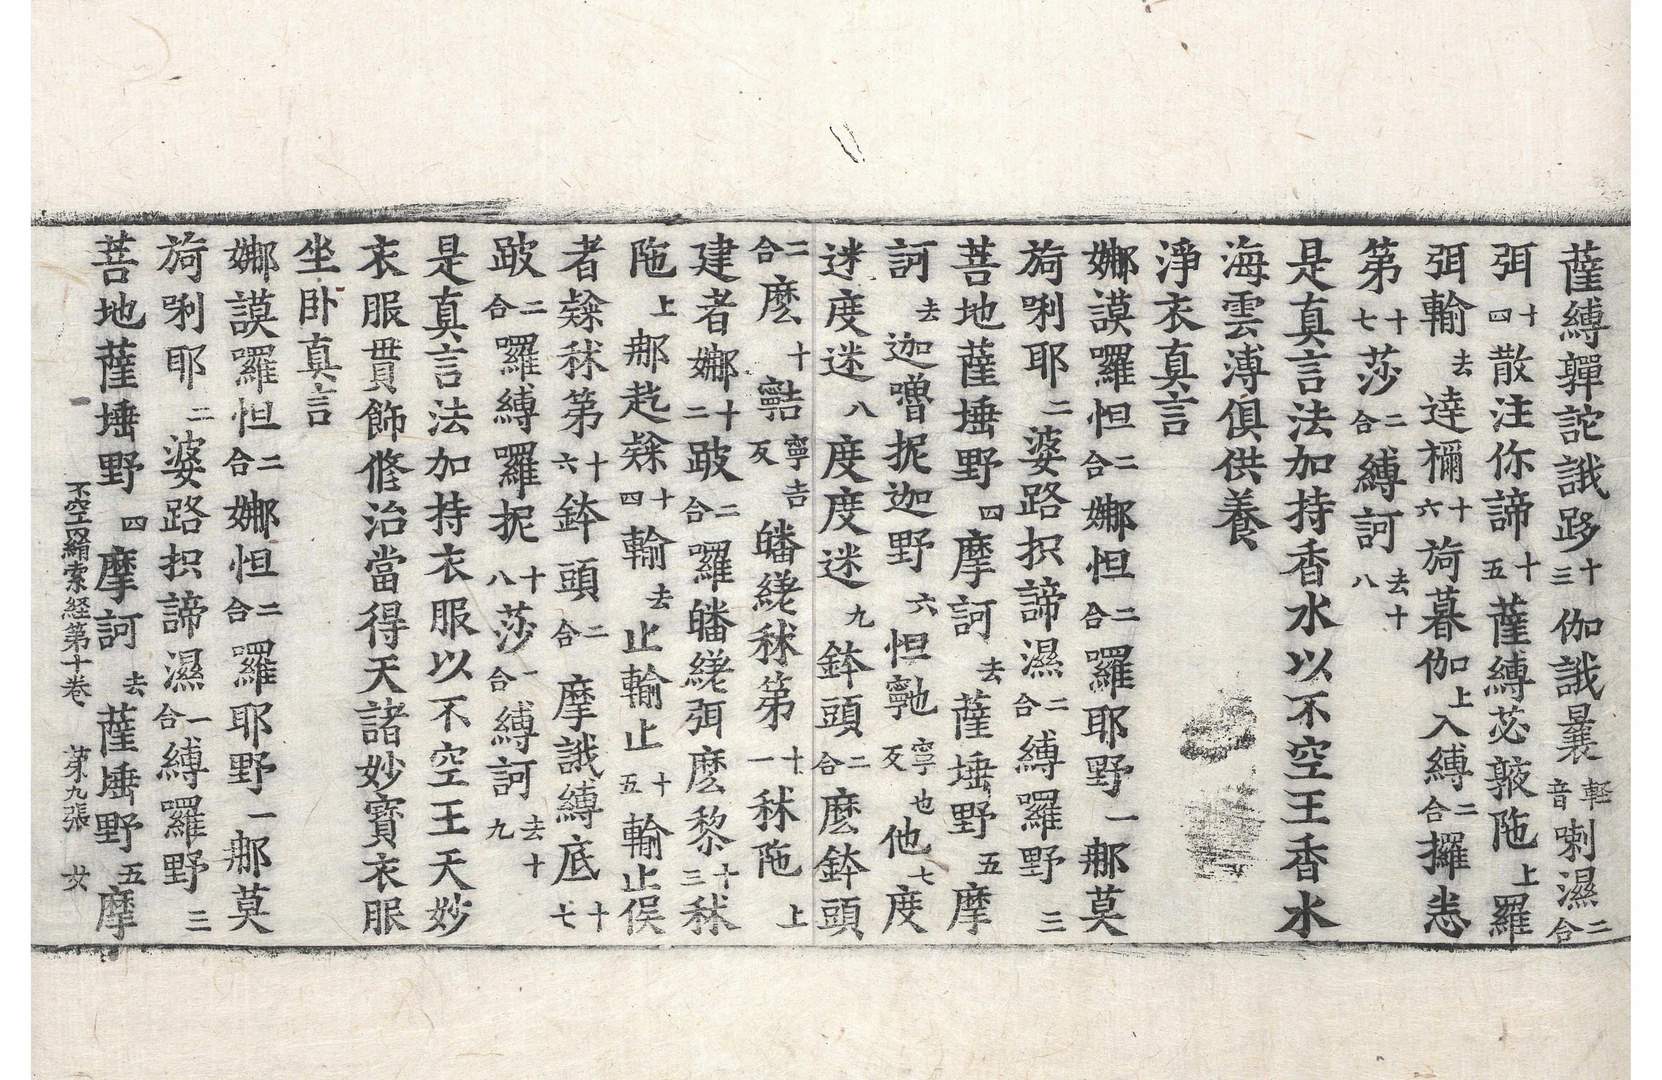 薩縛嚲詑誐跢十三伽誐曩輕音喇濕二合
弭十四散注你諦十五薩縛苾𨄔陁上羅
弭輸去逵禰十六旖暮伽上入縛二合攞恚
第十七莎二合縛訶去十八
是真言法加持香水以不空王香水
海雲溥俱供養
淨衣真言
娜謨囉怛二合娜怛二合囉耶野一那莫
旖唎耶二婆路抧諦濕二合縛囉野三
菩地薩埵野四摩訶去薩埵野五摩
訶去迦嚕抳迦野六怛寧也反他七度
迷度迷八度度迷九鉢頭二合麼鉢頭
二合麼十寧吉反皤䋈秫第十一秫陁上
建者娜十二跛二合囉皤䋈弭麼黎十三秫
陁上那訖𨤲十四輸去止輸止十五輸止俁
者𨤲秫第十六鉢頭二合摩誐縛底十七
跛二合囉縛囉抳十八莎一合縛訶去十九
是真言法加持衣服以不空王天妙
衣服貫飾修治當得天諸妙寶衣服
坐卧真言
娜謨囉怛二合娜怛二合囉耶野一那莫
旖唎耶二婆路抧諦濕一合縛囉野三
菩地薩埵野四摩訶去薩埵野五摩
不空羂索経第十卷 第九張 女